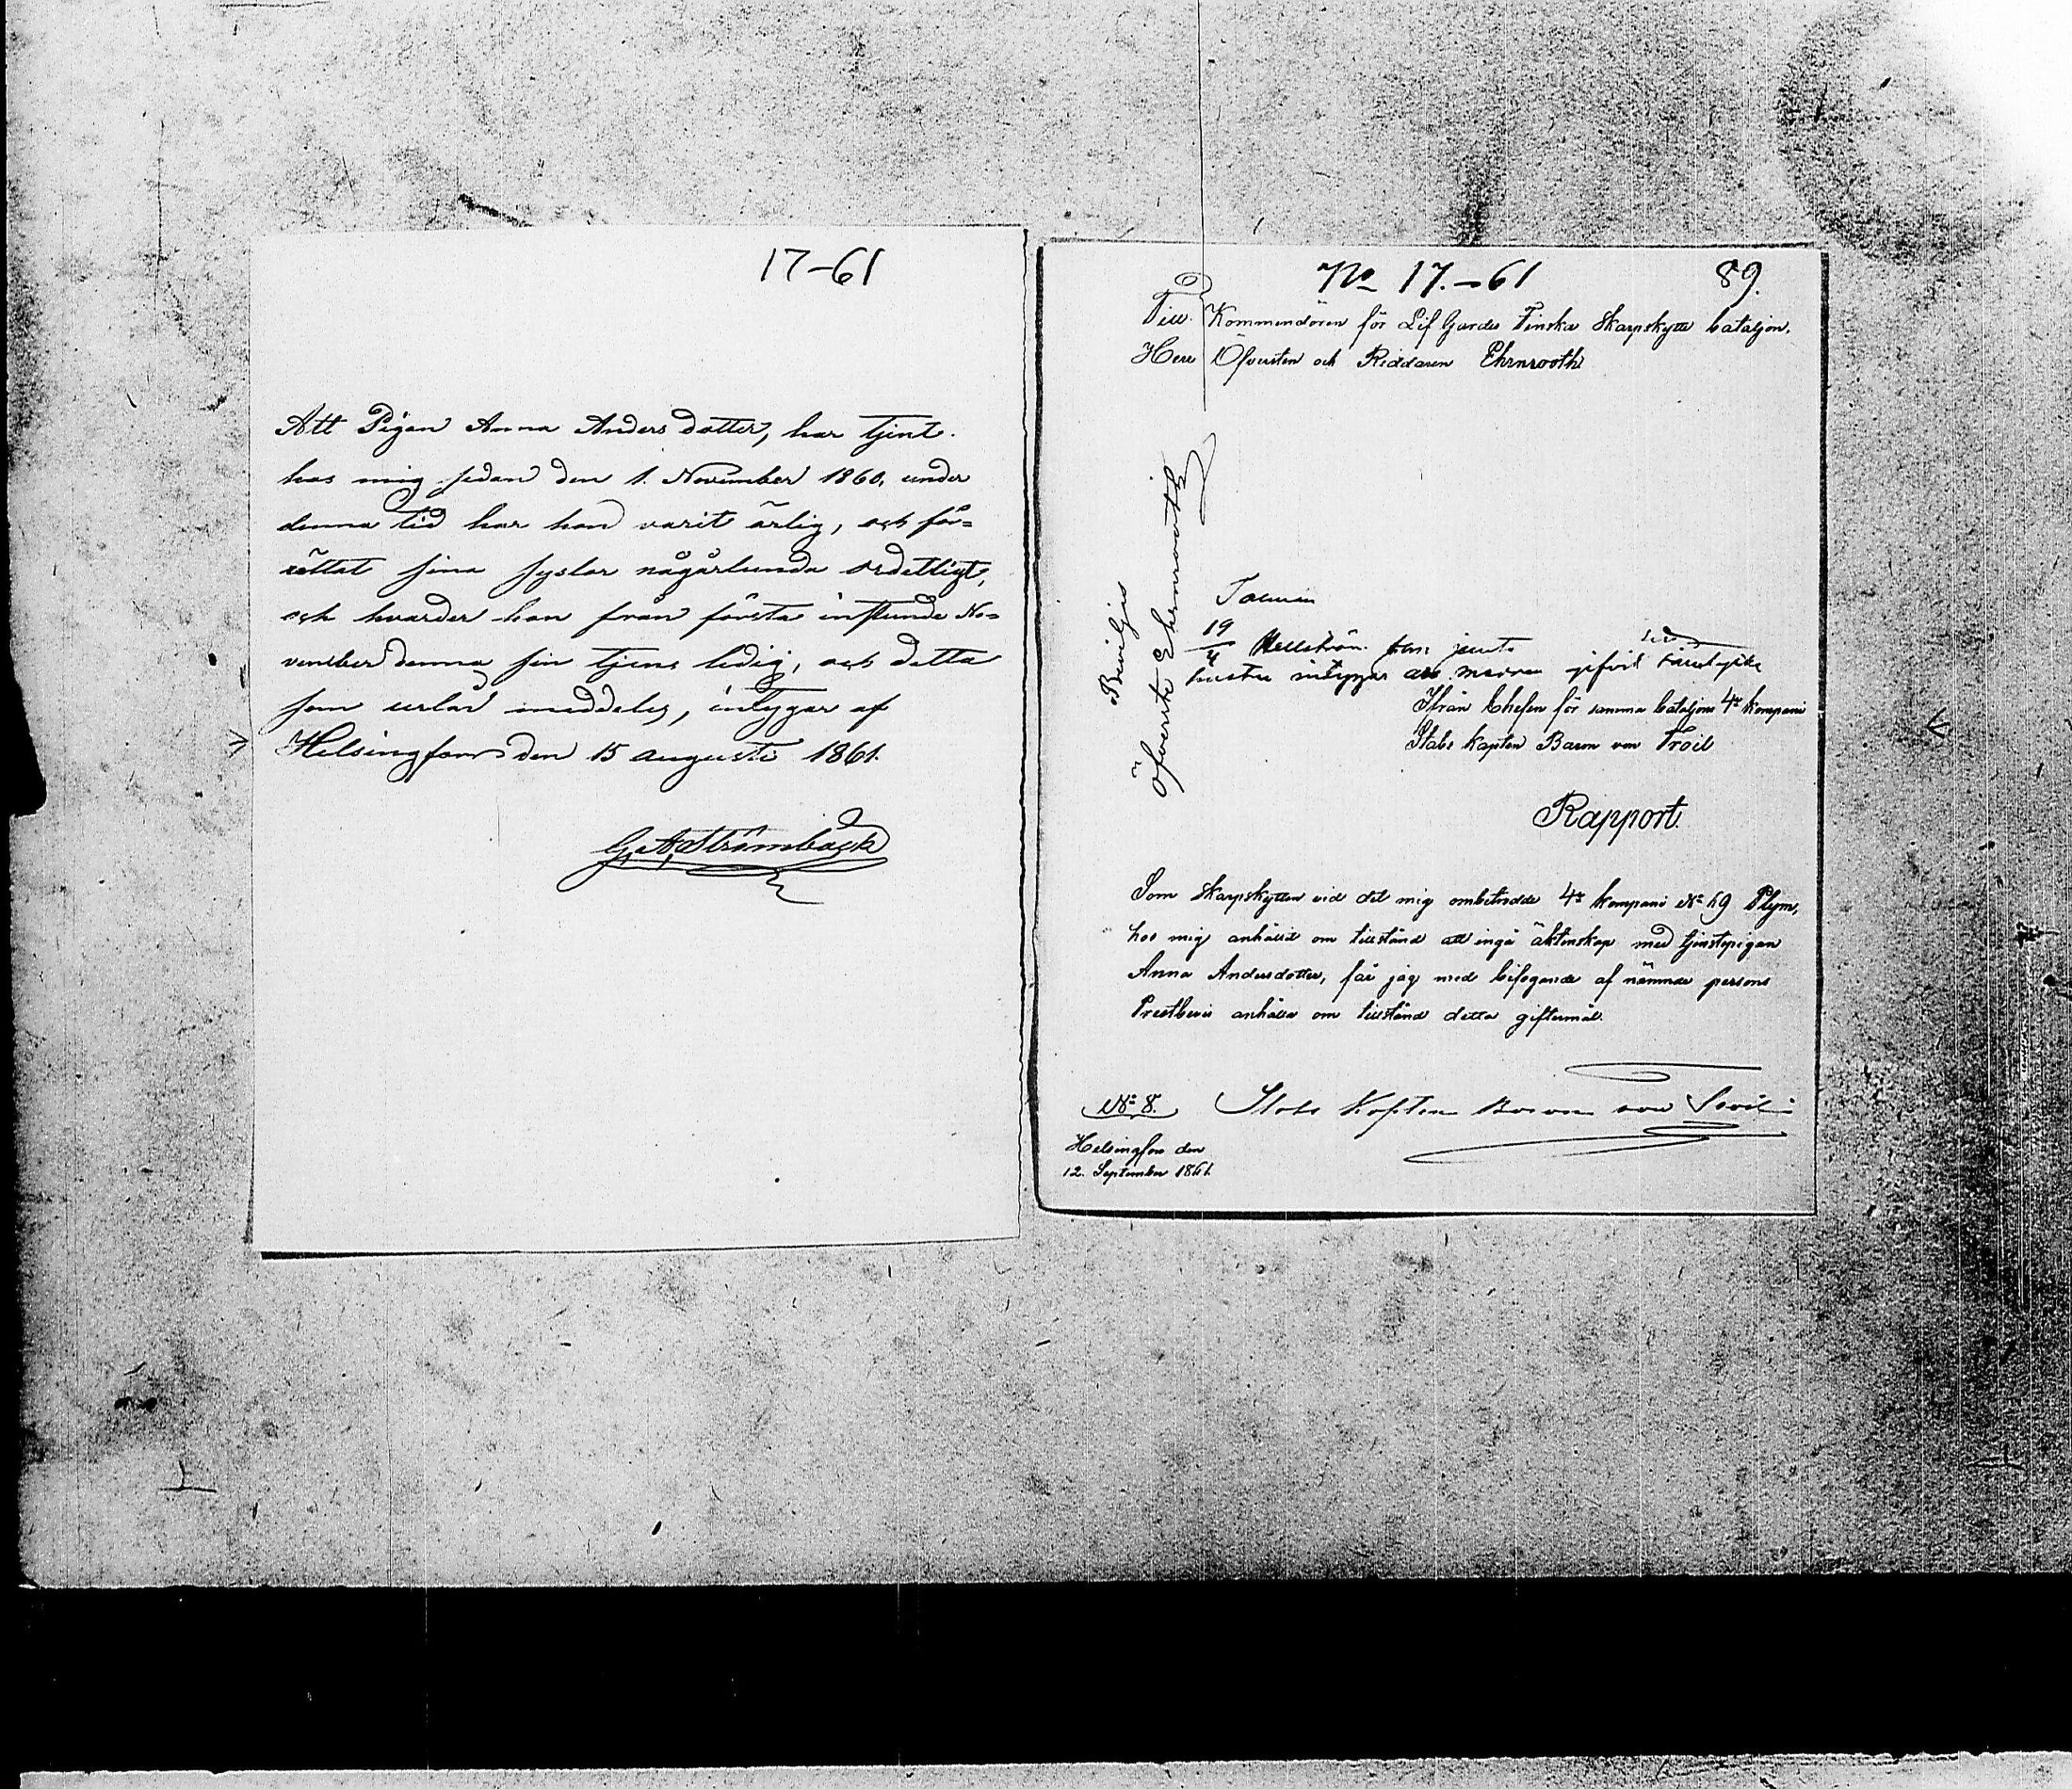 17-61
Att Pigan Anna Anders dotter, har tjent.
hos mig sedan den 1. November 1860, under
denna tid har hon varit ärlig, och för=
rättat sina sysslor någårlunda ordetligt,
och hvarder hon från första instunde No=
vember denna sin tjens ledig, och detta
som meddeles, intygar af
Helsingfors den 15 augusti 1861.
G. A. Strömbäck
No 17.-61
89.
Till Kommendören för Lif Gardes Finska Skarpskytte bataljon,
Herr Öfversten och Riddaren Ehrnrooth
Beviljas
Öfverste Ehrnrooth
19
4
hustru intygar att
Ifrån Chefen för samma bataljons 4de kompani
Stabs kapten Baron von Troil
Rapport.
Som skarpskytten vid det mig ombetrodde 4de kompani No 69 Plym,
hos mig anhållit om tillstånd att ingå äktenskap med tjenstepigan
Anna Andersdotter, får jag med bifogande af nämnde persons
Prestbevis anhålla om tillstånd detta giftermål.
No 8.
Stabs Kapten Baron von Troil
Helsingfors den
12. September 1861.